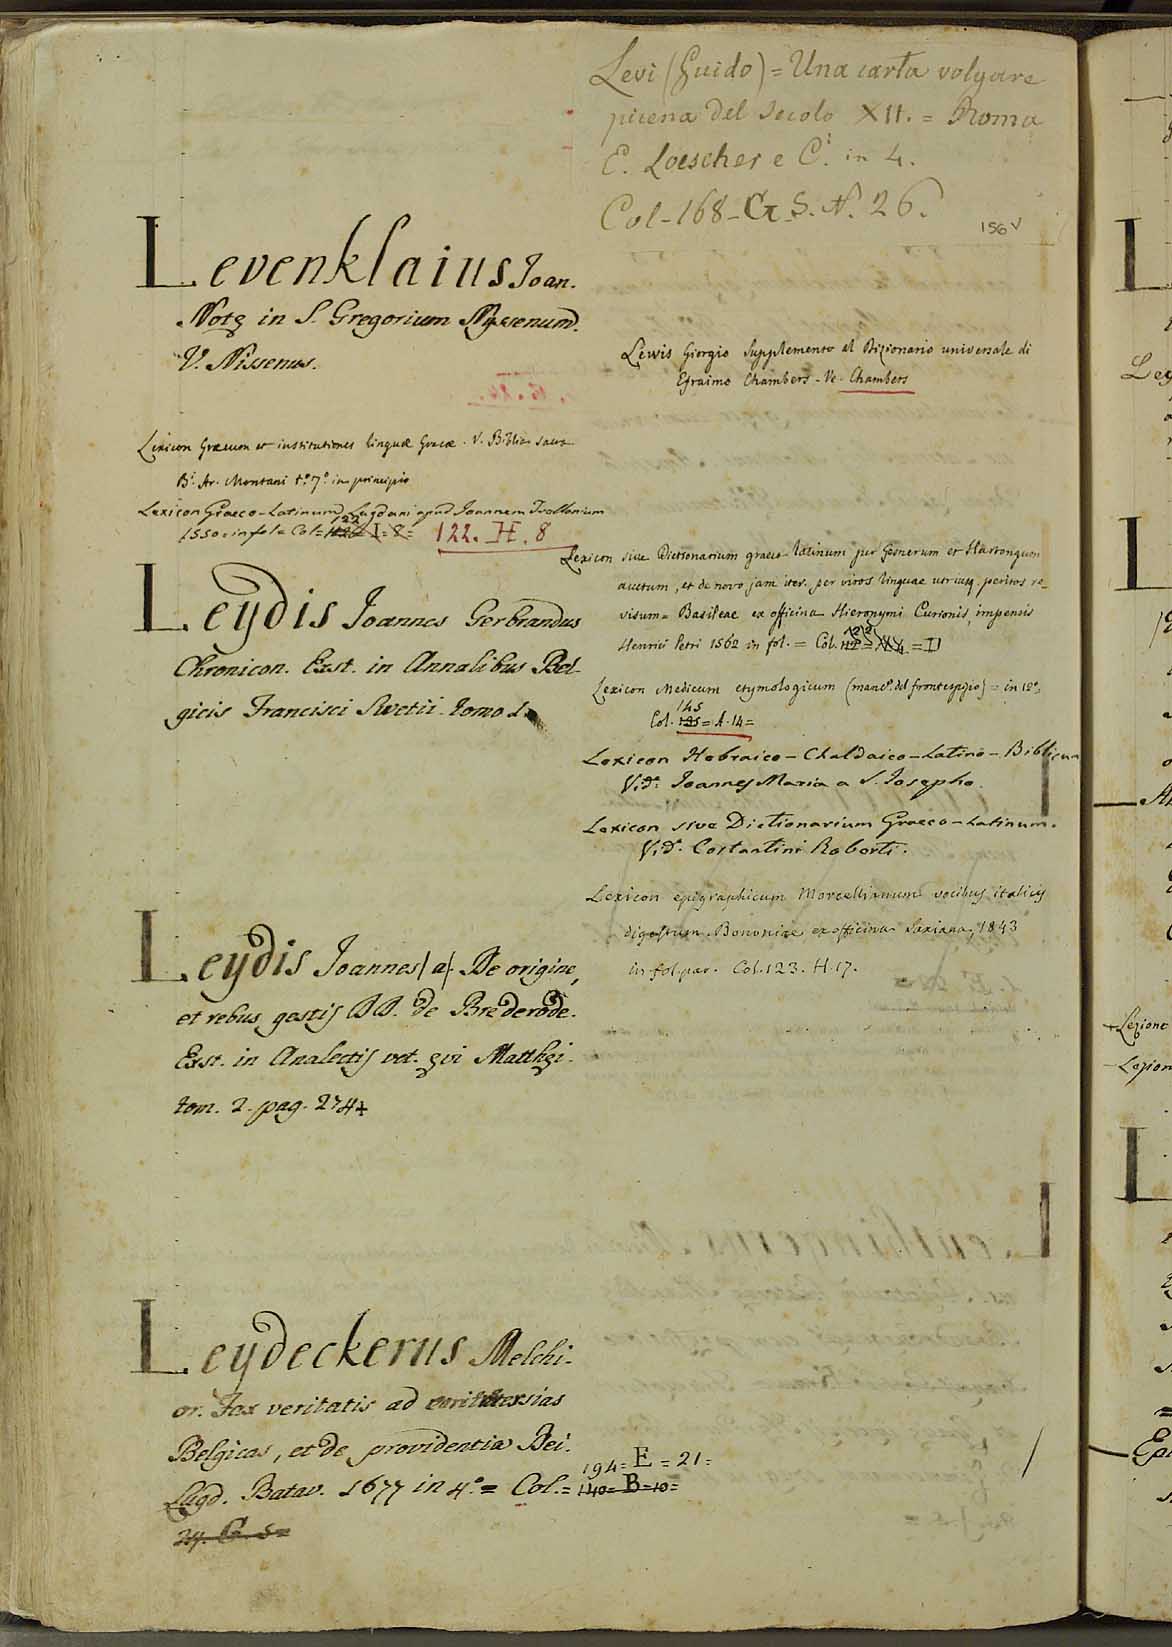 Levi (Guido) = Una carta volgare
picena del secolo XII. = Roma
E. Loescher e C.i in 4.
Col-168-G.S.N. 26.
156v
Levenklaius Joan.
Notę in S. Gregorium Nyssenum.
V. Nissenus.
Lewis Giorgio Supplemento al Dizionario universale di
Efraimo Chambers - Ve. Chambers
Lexicon Græcum et institutiones linguæ Græcæ. V. Biblia sacra
B.i Ar. Montani t.o 7.o in principio
Lexicon Graeco-Latinum Lugduni apud Joannem
1550. in fol = Col =
122. H. 8
Leydis Joannes Gerbrandus
Chronicon. Exst. in Annalibus Bel-
gicis Francisci Swetii. tomo 1.
Lexicon sive Dictionarium graeco-latinum per Gesnerum et Hartongum
auctum, et de novo jam iter. per viros linguae utriusq. peritos re-
visum = Basileae ex officina Hieronymi Curionis, impensis
Henrici Petri 1562 in fol. = Col.
Lexicon Medicum etymologicum (manc.e del frontespizio) = in 12.o
145
Col. = A. 14 =
Lexicon Hebraico-Chaldaico-Latino-Biblicum
Vid. Joannes Maria a S. Josepho.
Lexicon sive Dictionarium Graeco-Latinum.
Vid. Costantini Roberti.
Lexicon epigraphicum Morcellianum vocibus italicis
digestum. Bononiae ex officina Saxiana, 1843
in fol. par. Col. 123. H. 17.
Leydis Joannes (a). De origine,
et rebus gestis DD. de Brederode.
Exst. in Analectis vet. ęvi Matthęi.
tom. 2. pag. 274
Leydeckerus Melchi-
or. Fax veritatis ad
Belgicas, et de providentia Dei.
194 = E = 21 =
Lugd. Batav. 1677 in 4.o = Col. = 140 = B = 10 =
24. G. 5 =